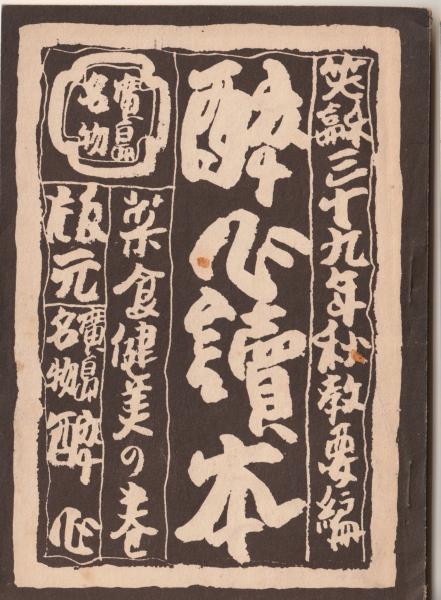 笑譯三十九年秋教要編
酔心讀本
菜食健美の巻
廣島
名物
版元
廣島
名物
酔心